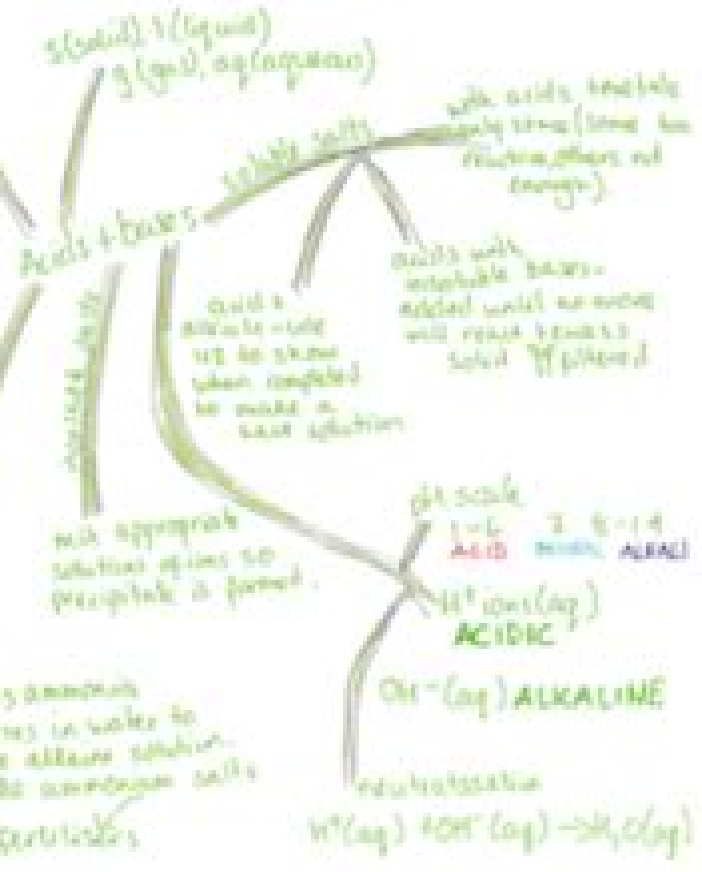 s(solid), l(liquid)
g(gas), aq(aqueous)
soluble salts
with acids, metals
only some (some too
reactive, others not
enough)
Acids + bases
acids with
insoluble bases.
Added until no more
will react & excess
solid filtered
acid +
alkali - use
UI to show
when completed
to make a
salt solution
insoluble salts
mix appropriate
solutions of ions so
precipitate is formed.
pH scale
1-6 7 8-14
ACID NEUTRAL ALKALI
H+ ions (aq)
ACIDIC
OH-(aq) ALKALINE
neutralisation
H+(aq) + OH-(aq) → H₂O(aq)
s ammonia
ves in water to
alkaline solution.
ammonium salts
fertilisers